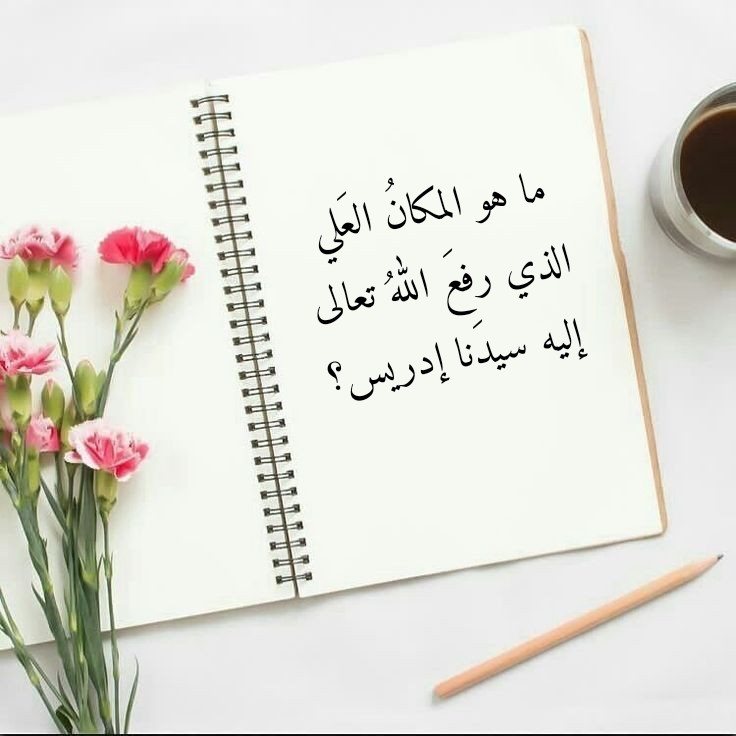 ما هو المكانُ العَلي
الذي رفعَ اللهُ تعالى
إليه سيدَنا إدريس؟